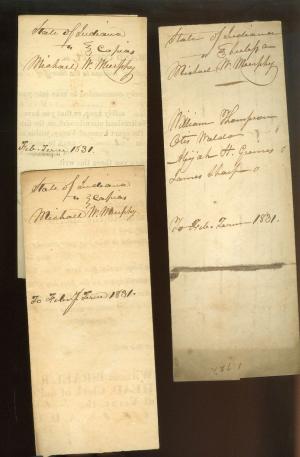 State of Indiana
vs } Capias
Michael W. Murphy
Feb. Term 1831.
State of Indiana
vs } Capias
Michael W. Murphy
To Feb. Term 1831.
State of Indiana
vs } Subpa
Michael W. Murphy
William Thompson
Otis Waldo
Elijah H. Grimes o
James Sharp o
To Feb. Term 1831.